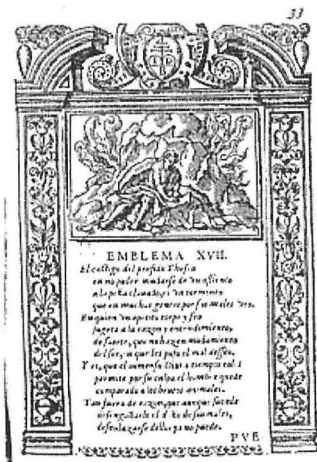 33
EMBLEMA XVII.
El castigo del profido Theseo
en no poder mudarse de un assiento
a la peña clavado, es un tormento
que en muchos genero por sus males veo.
En quien un apetito torpe y feo
sugeta a la razon y entendimiento,
de suerte, que no hazen mudamiento
del ser, en que los puso el mal desseo.
Y es, que el immenso Dios a tiempo tal
permite por su culpa el hombre quede
comparado a los brutos animales.
Tan fuera de razon, que aunque sucede
desengañarle el de sus males,
desenlazarse dellos ya no puede.
PVE